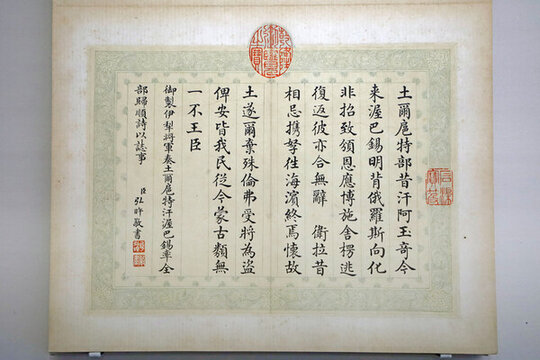 土爾扈特部昔汗阿玉奇今
來渥巴錫明背俄羅斯向化
非招致頒恩應博施舍楞逃
復返彼亦合無辭 衛拉昔
相忌携孥往海濱終焉懷故
土遂爾棄殊倫弗受將為盜
俾安皆我民從今蒙古類無
一不王臣
御製伊犁將軍奏土爾扈特汗渥巴錫率全
部歸順詩以誌事
臣弘旿敬書